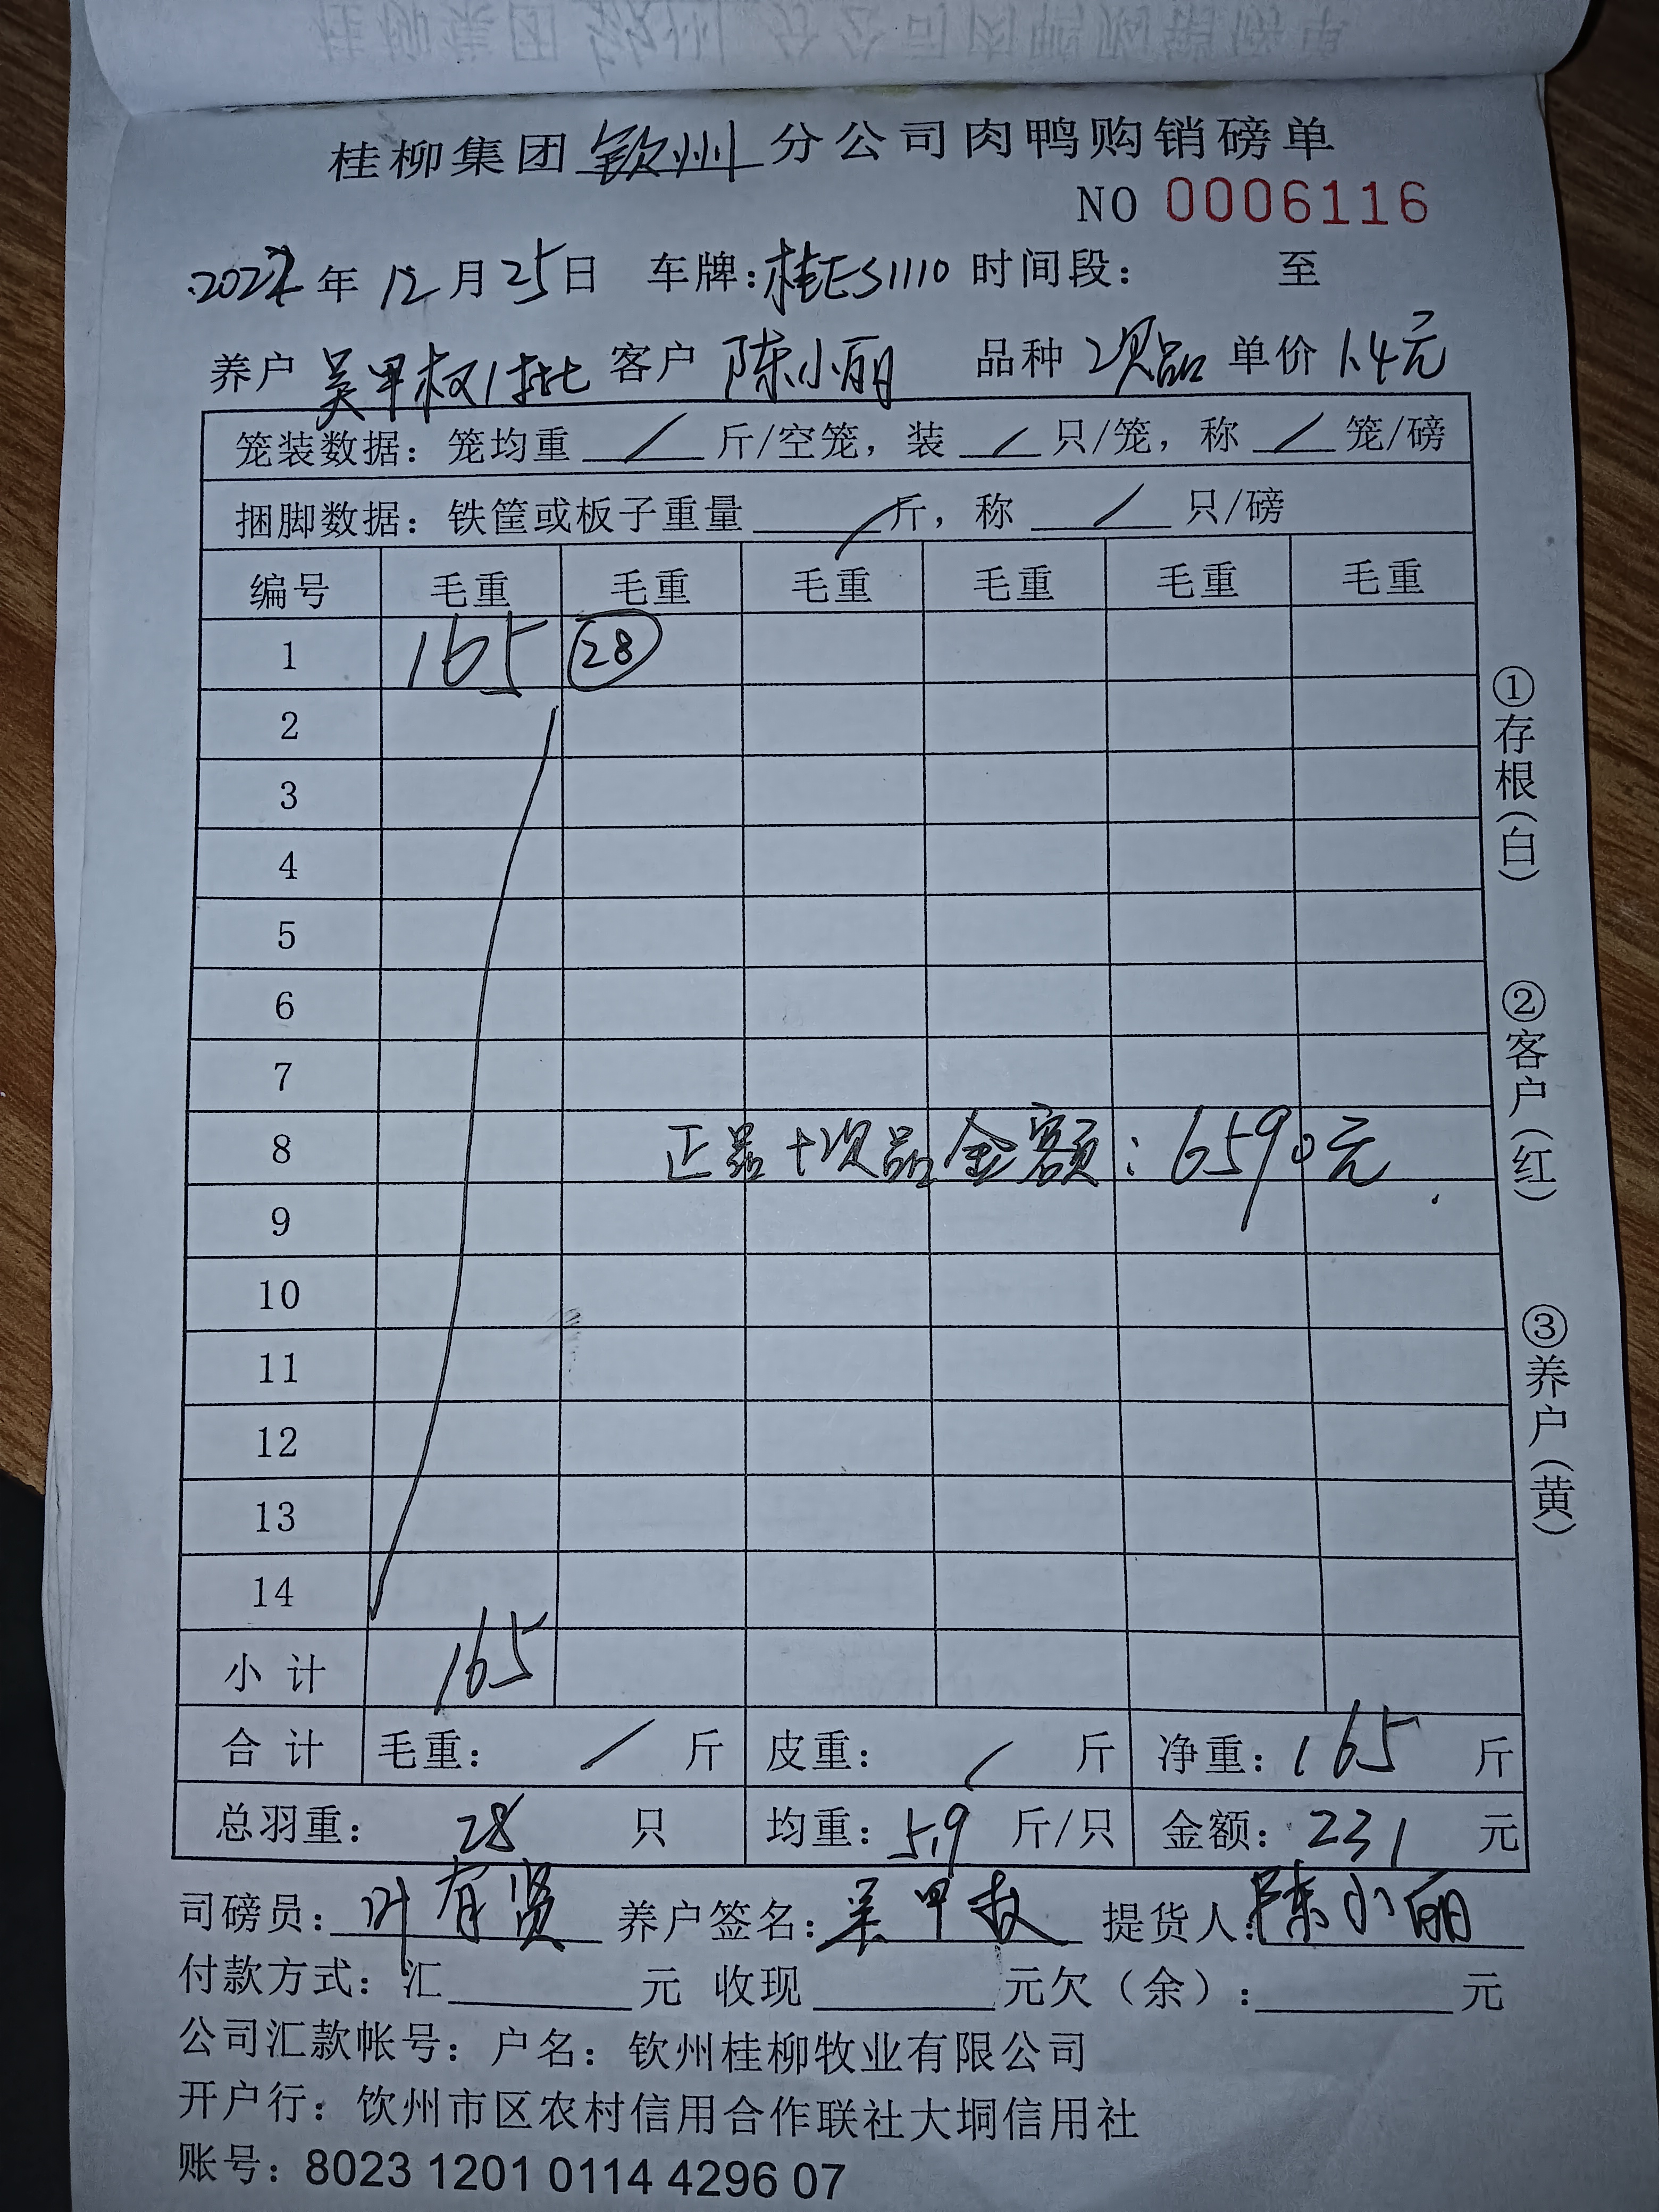 桂柳集团钦州分公司肉鸭购销磅单
NO 0006116
2022年12月25日 车牌:桂ES1110 时间段: 至
养户 吴甲权1批 客户 陈小丽 品种 次品 单价 1.4元
笼装数据: 笼均重 / 斤/空笼, 装 / 只/笼, 称 / 笼/磅
捆脚数据: 铁筐或板子重量 / 斤, 称 / 只/磅
编号 毛重 毛重 毛重 毛重 毛重 毛重
1 165 28
2
3
4
5
6
7
8 正品+次品金额: 6590元
9
10
11
12
13
14
小计 165
合计 毛重: / 斤 皮重: / 斤 净重: 165 斤
总羽重: 28 只 均重: 5.9 斤/只 金额: 231 元
司磅员: 叶有贤 养户签名: 吴甲权 提货人: 陈小丽
付款方式: 汇 元 收现 元欠(余): 元
公司汇款帐号: 户名: 钦州桂柳牧业有限公司
开户行: 钦州市区农村信用合作联社大垌信用社
账号: 8023 1201 0114 4296 07
①存根(白)
②客户(红)
③养户(黄)